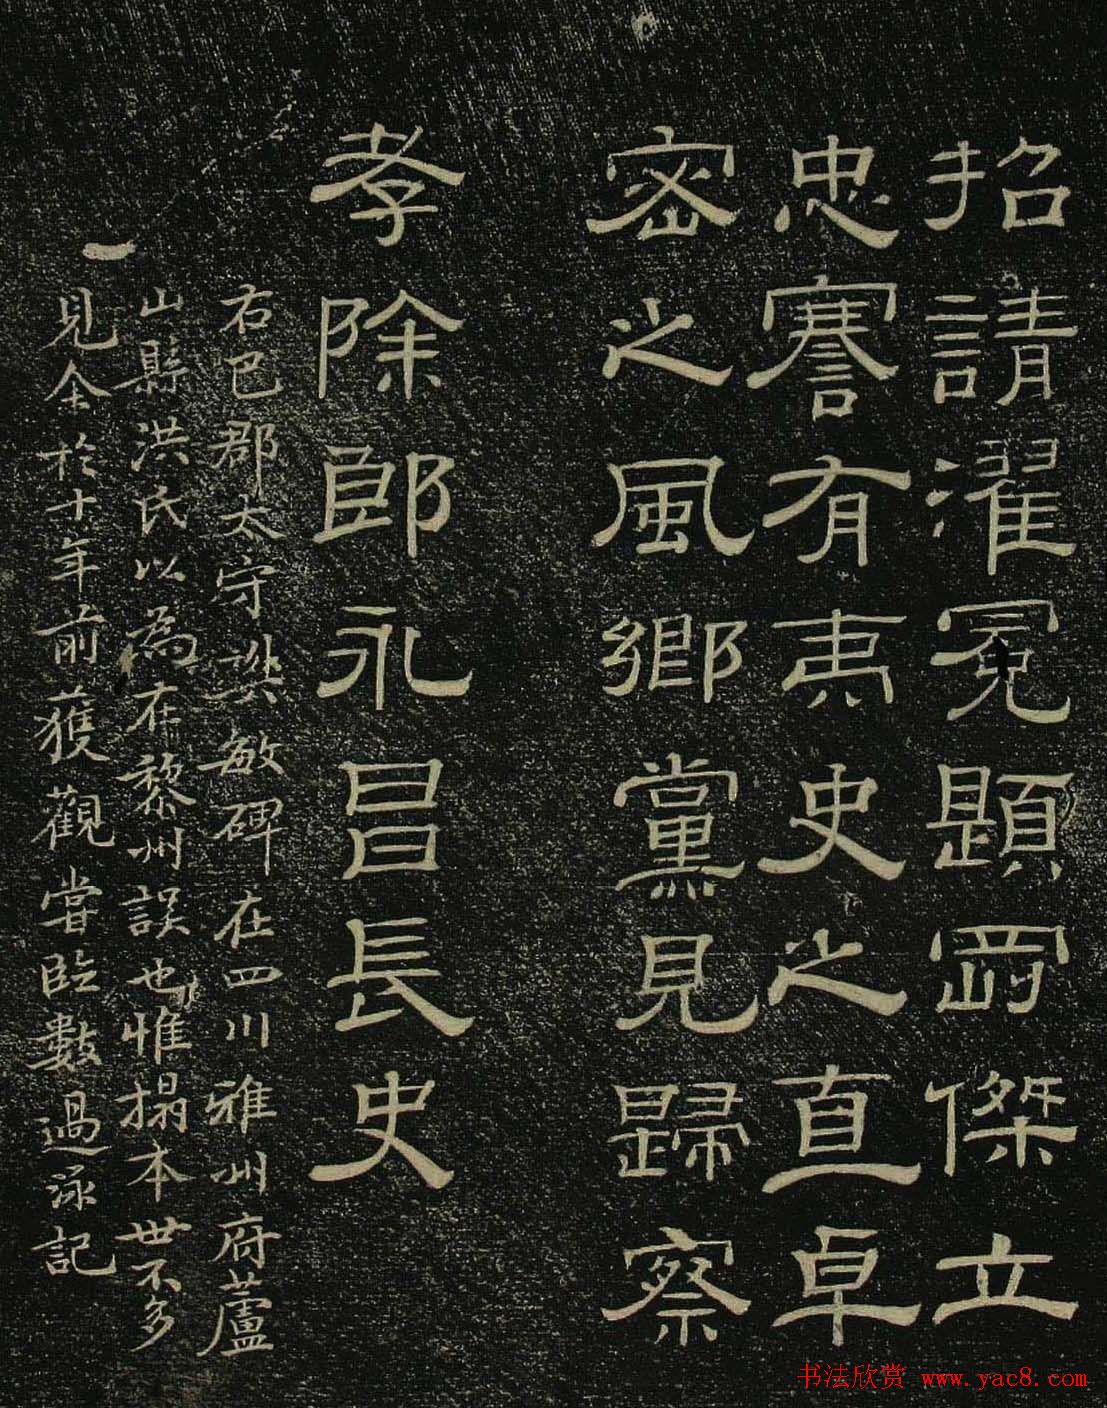 招請濯冕題岡傑立
忠謇有夷史之直卓
密之風鄉黨見歸察
孝除郎永昌長史
右巴郡太守樊敏碑在四川雅州府蘆
山縣洪氏以為在黎州誤也惟搨本世不多
見余於十年前獲觀嘗臨數過泳記
书法欣赏 www.yac8.com